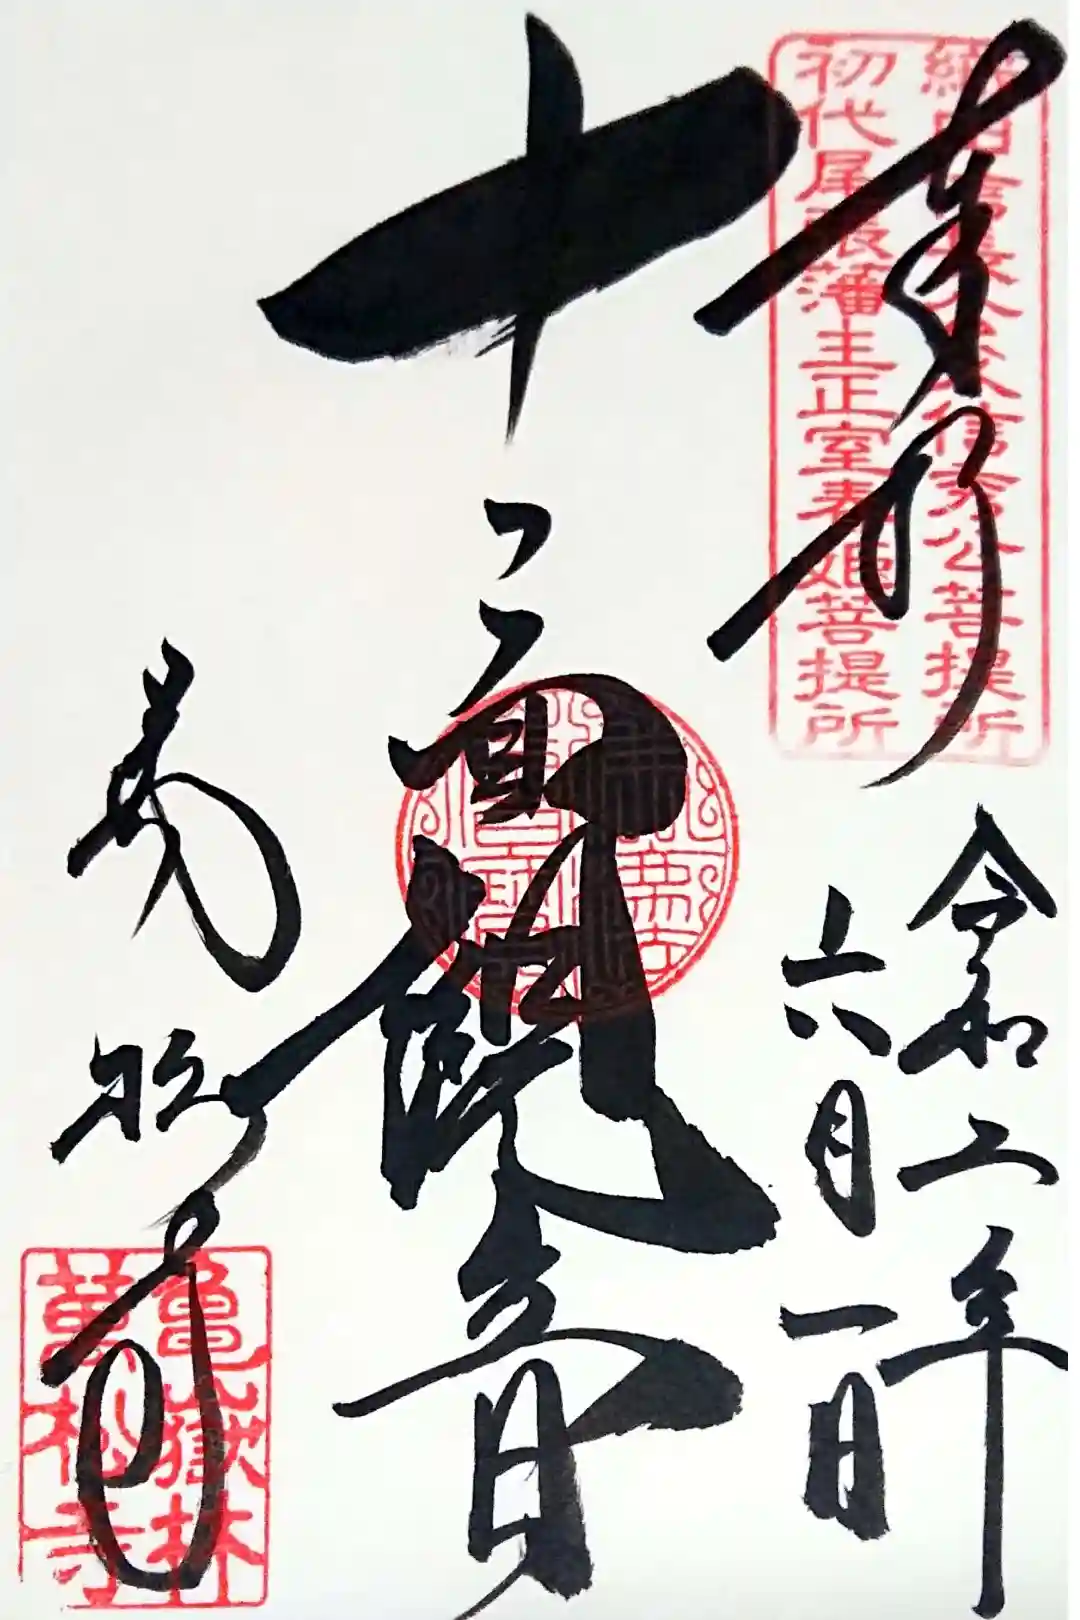 奉拝
織田信長公父信秀公菩提所
初代尾張藩主正室春姫菩提所
令和二年
六月一日
十一面観音
萬松寺
亀嶽林
萬松寺